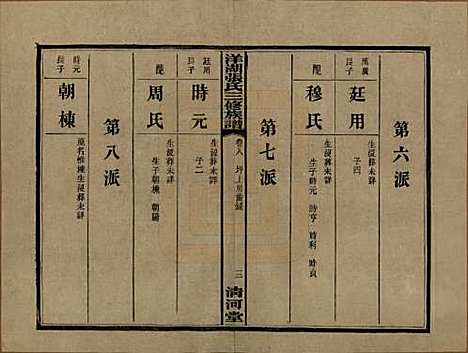 第六派
萬廣
長子
廷用
生歿葬未詳
子四
配
穆氏
生歿葬未詳
生子時元 時亨 時利 時貞
第七派
洋湖張氏三修族譜
卷八
坪上房齒錄
三
清河堂
廷用
長子
時元
生歿葬未詳
子二
配
周氏
生歿葬未詳
生子朝棟 朝陽
第八派
時元
長子
朝棟
原名惟棟生歿葬未詳